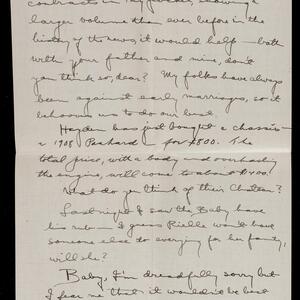 contracts in my pocket, showing a
larger volume than ever before in the
history of the news, it would help - both
with your father and mine, don't
you think so, dear? My folks have always
been against early marriages, so it
behooves us to do our best.
Hayden has just bought a chassis -
a 1908 Packard - for $800. The
total price, with a body and overhauling
the engine, will come to about
What do you think of their Chateau?
Last night I saw the Baby have
his rub - I guess Rielle won't have
someone else to everything for her
will she?
Baby, I'm dreadfully sorry but
I fear me that it wouldn't be best